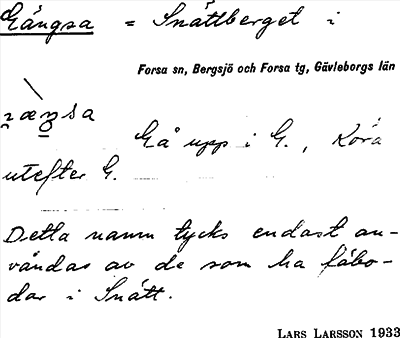 Gängsa = Snättberget i
Forsa sn, Bergsjö och Forsa tg, Gävleborgs län
Gå upp i G., Köra
utefter G.
Detta namn tycks endast an-
vändas av de som ha fäbo-
dar i Snätt.
LARS LARSSON 1933